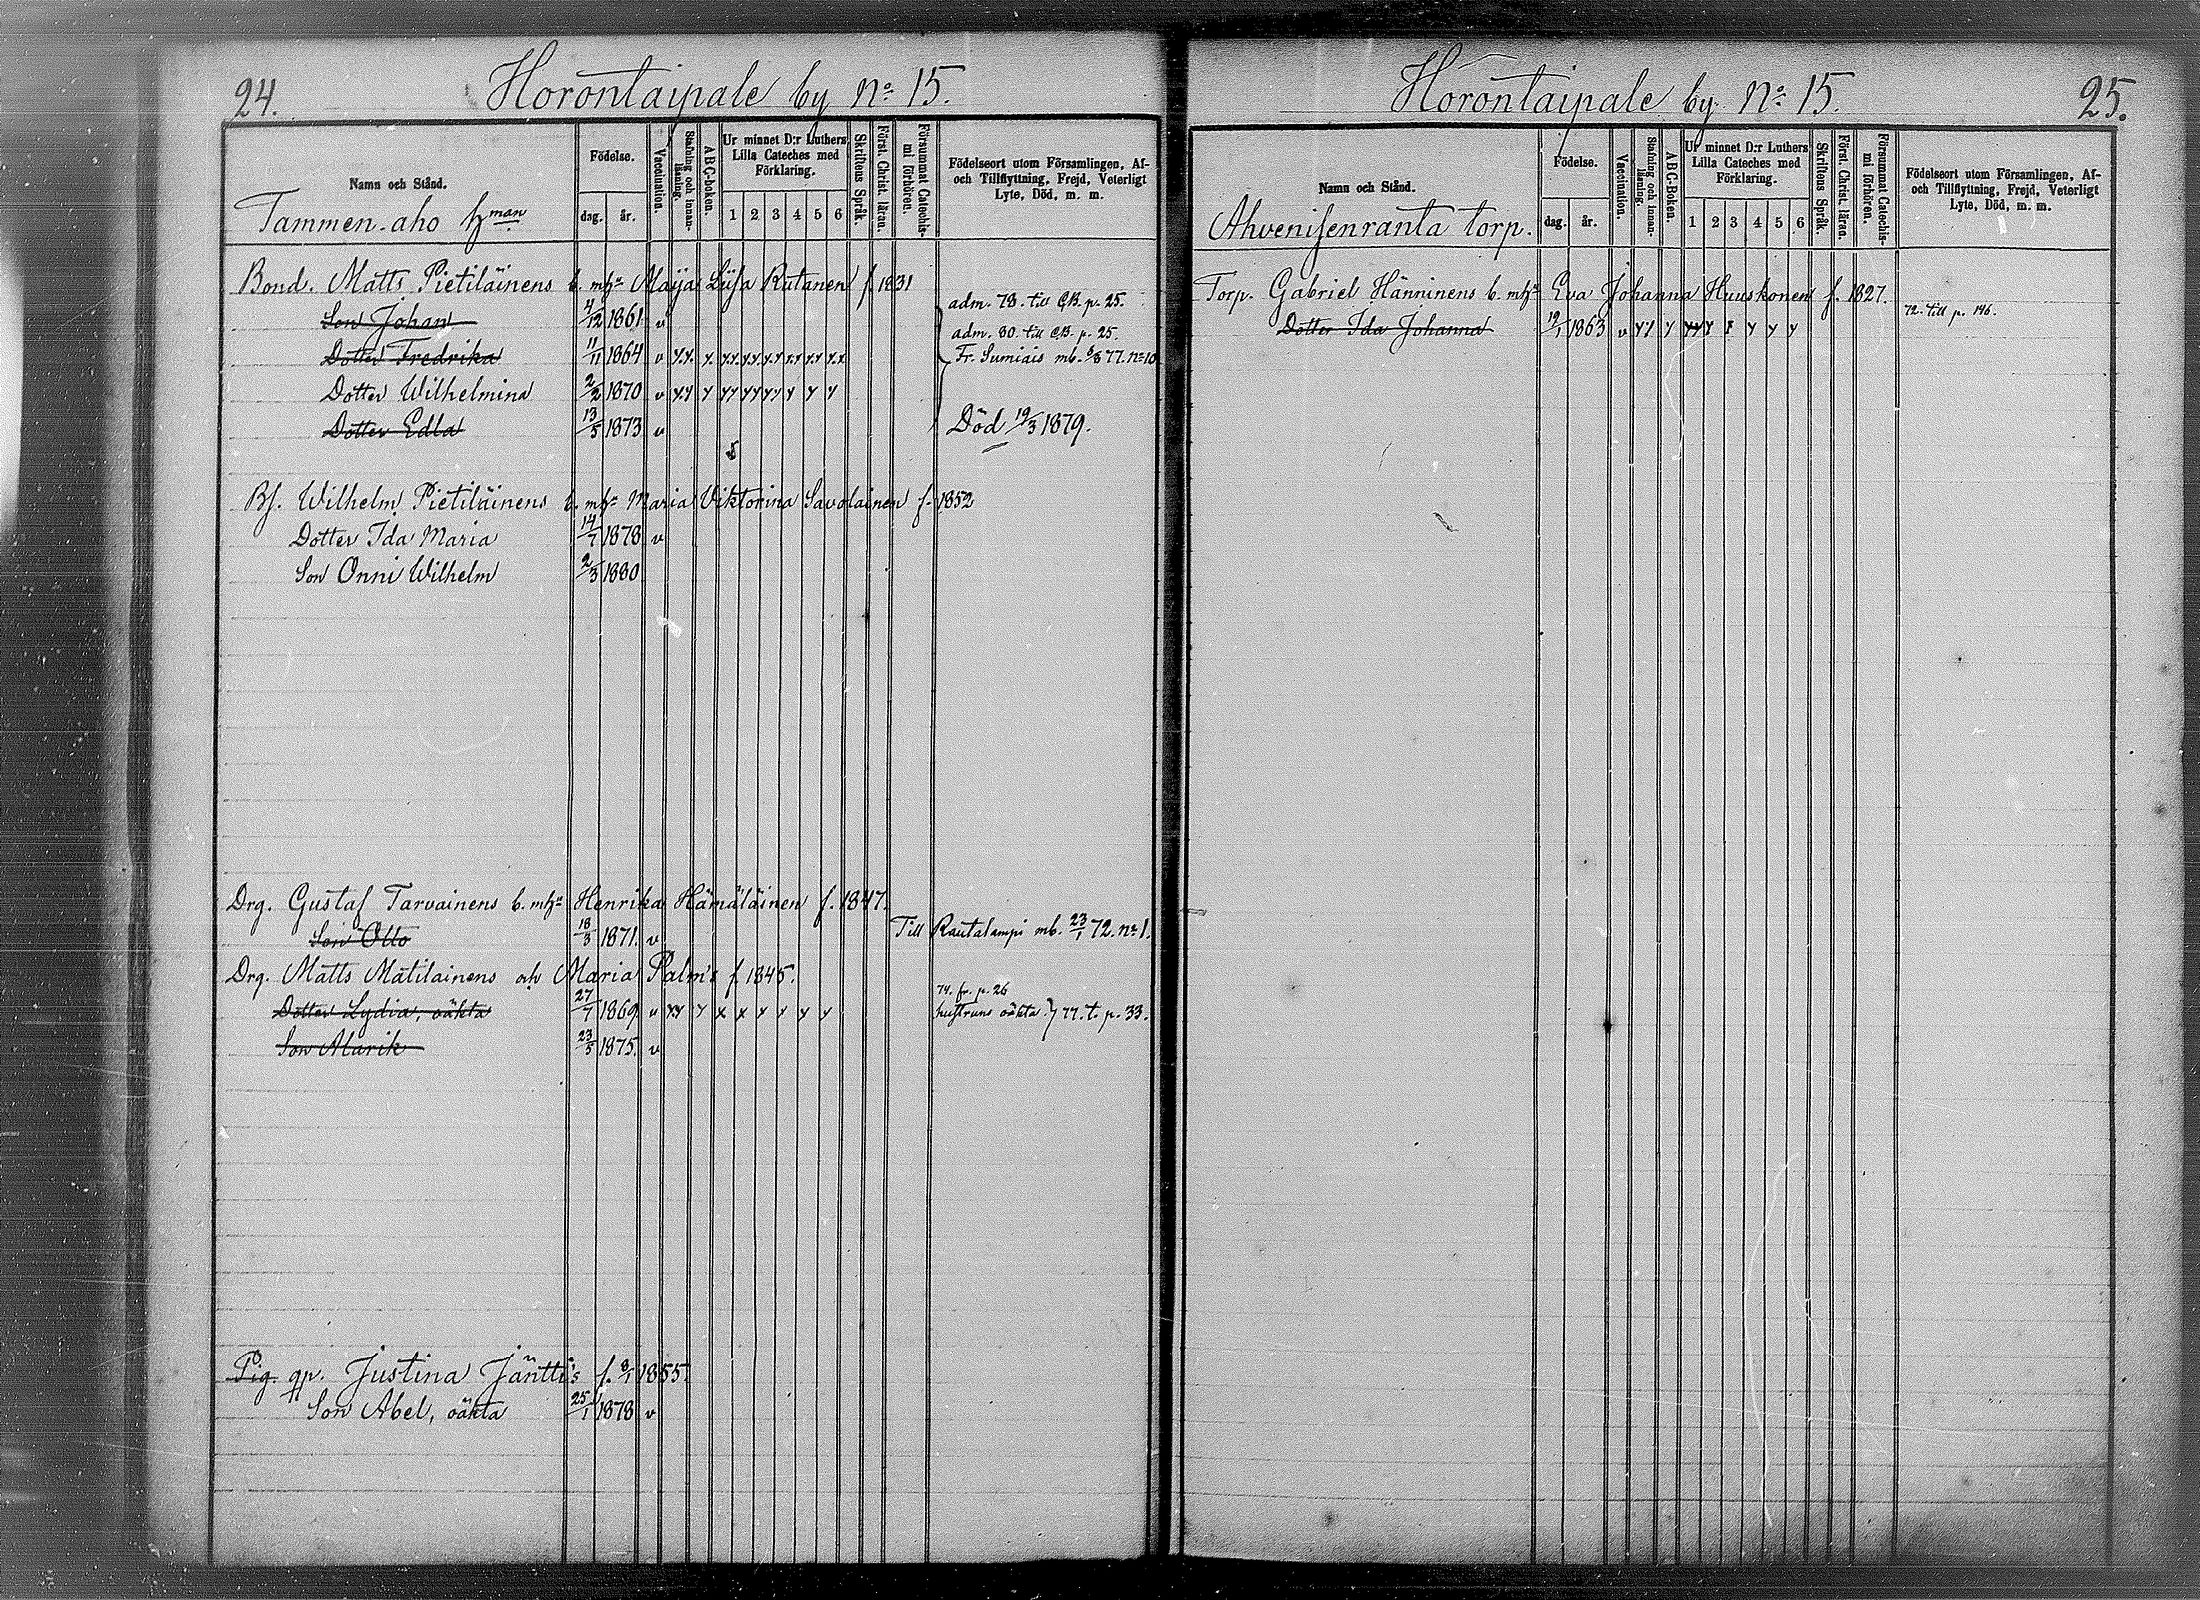 24.
Horontaipale by No 15.
Namn och Stånd.
Födelse.
dag.
år.
Vaccination.
Stafning och innan-läsning.
A B C-boken.
Ur minnet D:r Luthers
Lilla Cateches med
Förklaring.
1 2 3 4 5 6
Skriftens Språk.
Först. Christ. läran.
Försummat Catechis-mi förhören.
Födelseort utom Församlingen, Af-
och Tillflyttning, Frejd, Veterligt
Lyte, Död, m. m.
Tammen-aho hman
Bond. Matts Pietiläinens b. mhu Maija Liisa Rutanen f. 1831
Son Johan 4/12 1861 v adm. 78. till C.B. p. 25.
adm. 80. till C.B. p. 25.
Dotter Fredrika 11/11 1864 v Fr. Sumiais mb. 77. no 10
Dotter Wilhelmina 2/2 1870 v
Dotter Edla 13/5 1873 v Död 19/3 1879.
Bf. Wilhelm Pietiläinens b. mhu Maria Viktorina Savolainen f. 1852
Dotter Ida Maria 14/7 1878 v
Son Onni Wilhelm 2/3 1880
Drg. Gustaf Tarvainens b. mhu Henrika Hämäläinen f. 1847.
Son Otto 18/3 1871. v Till Rautalampi mb. 23/1 72. no 1.
Drg. Matts Matilainens och Maria Palm's f. 1845.
74. fr. p. 26
Dotter Lydia, oäkta 27/7 1869 v hustruns oäkta } 77. t. p. 33.
Son Marik 23/5 1875. v
Pig. qp. Justina Jäntti's f. 8/1 1855.
Son Abel, oäkta 25/1 1878 v
Horontaipale by No 15.
25.
Namn och Stånd.
Födelse.
dag.
år.
Vaccination.
Stafning och innan-läsning.
A B C-Boken.
Ur minnet D:r Luthers
Lilla Cateches med
Förklaring.
1 2 3 4 5 6
Skriftens Språk.
Först. Christ. läran.
Försummat Catechis-mi förhören.
Födelseort utom Församlingen, Af-
och Tillflyttning, Frejd, Veterligt
Lyte, Död, m. m.
Ahvenisenranta torp.
Torp. Gabriel Hänninens b. mhu Eva Johanna Huuskonen f. 1827.
Dotter Ida Johanna 19/1 1863 v 72. till p. 146.